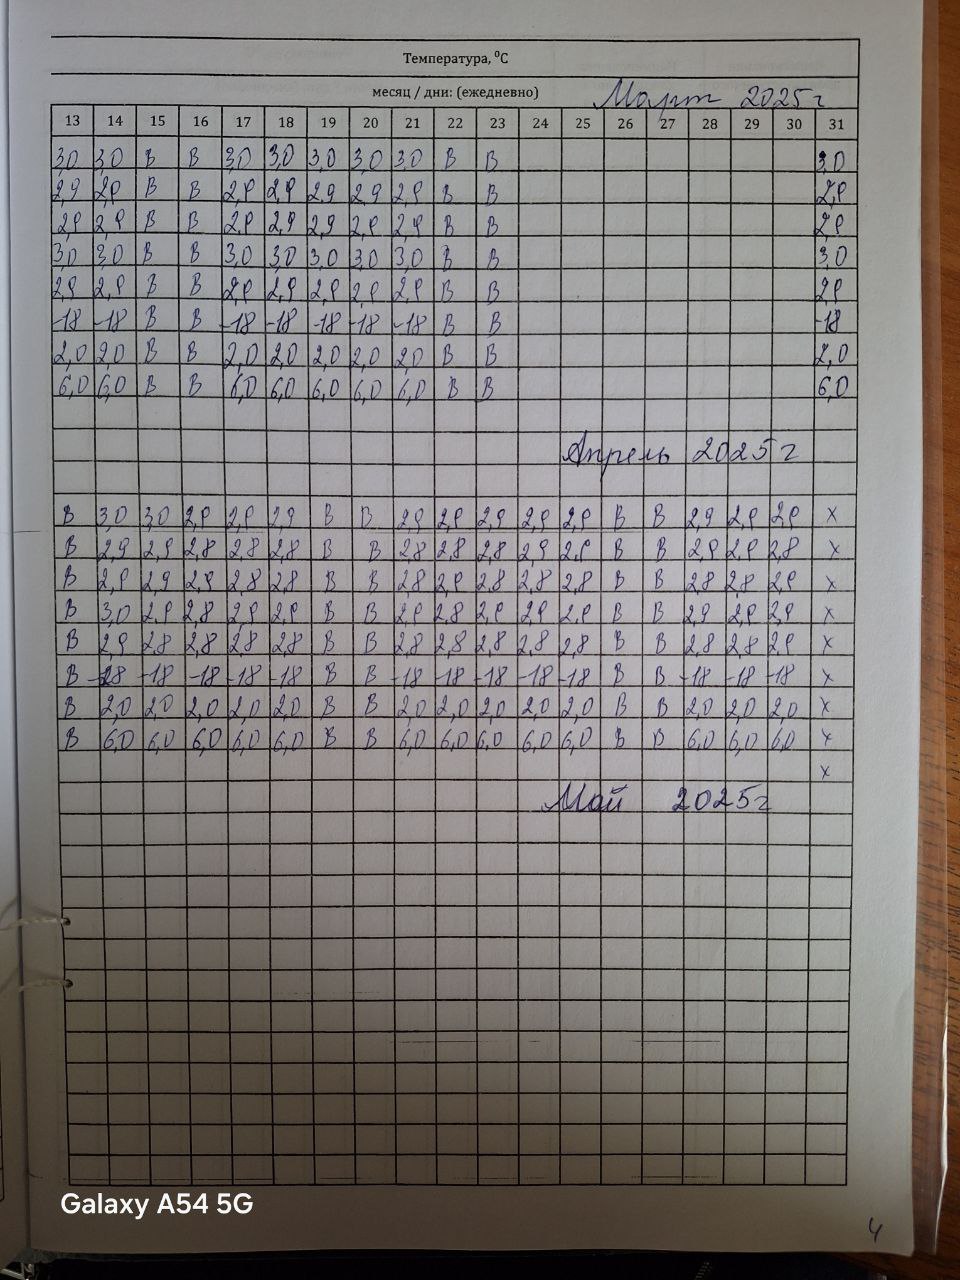 Температура, ⁰С
месяц / дни: (ежедневно) Март 2025г
13 14 15 16 17 18 19 20 21 22 23 24 25 26 27 28 29 30 31
3,0 3,0 В В 3,0 3,0 3,0 3,0 3,0 В В 3,0
2,9 2,9 В В 2,9 2,9 2,9 2,9 2,9 В В 2,9
2,9 2,9 В В 2,9 2,9 2,9 2,9 2,9 В В 2,9
3,0 3,0 В В 3,0 3,0 3,0 3,0 3,0 В В 3,0
2,9 2,9 В В 2,9 2,9 2,9 2,9 2,9 В В 2,9
-18 -18 В В -18 -18 -18 -18 -18 В В -18
2,0 2,0 В В 2,0 2,0 2,0 2,0 2,0 В В 2,0
6,0 6,0 В В 6,0 6,0 6,0 6,0 6,0 В В 6,0
Апрель 2025г
В 3,0 3,0 2,9 2,9 2,9 В В 2,9 2,9 2,9 2,9 2,9 В В 2,9 2,9 2,9 х
В 2,9 2,9 2,8 2,8 2,8 В В 2,8 2,8 2,8 2,9 2,9 В В 2,9 2,9 2,8 х
В 2,9 2,9 2,9 2,8 2,8 В В 2,8 2,9 2,8 2,8 2,8 В В 2,8 2,8 2,9 х
В 3,0 2,9 2,8 2,9 2,9 В В 2,9 2,8 2,9 2,9 2,9 В В 2,9 2,9 2,9 х
В 2,9 2,8 2,8 2,8 2,8 В В 2,8 2,8 2,8 2,8 2,8 В В 2,8 2,8 2,9 х
В -18 -18 -18 -18 -18 В В -18 -18 -18 -18 -18 В В -18 -18 -18 х
В 2,0 2,0 2,0 2,0 2,0 В В 2,0 2,0 2,0 2,0 2,0 В В 2,0 2,0 2,0 х
В 6,0 6,0 6,0 6,0 6,0 В В 6,0 6,0 6,0 6,0 6,0 В В 6,0 6,0 6,0 х
х
Май 2025г
Galaxy A54 5G
4